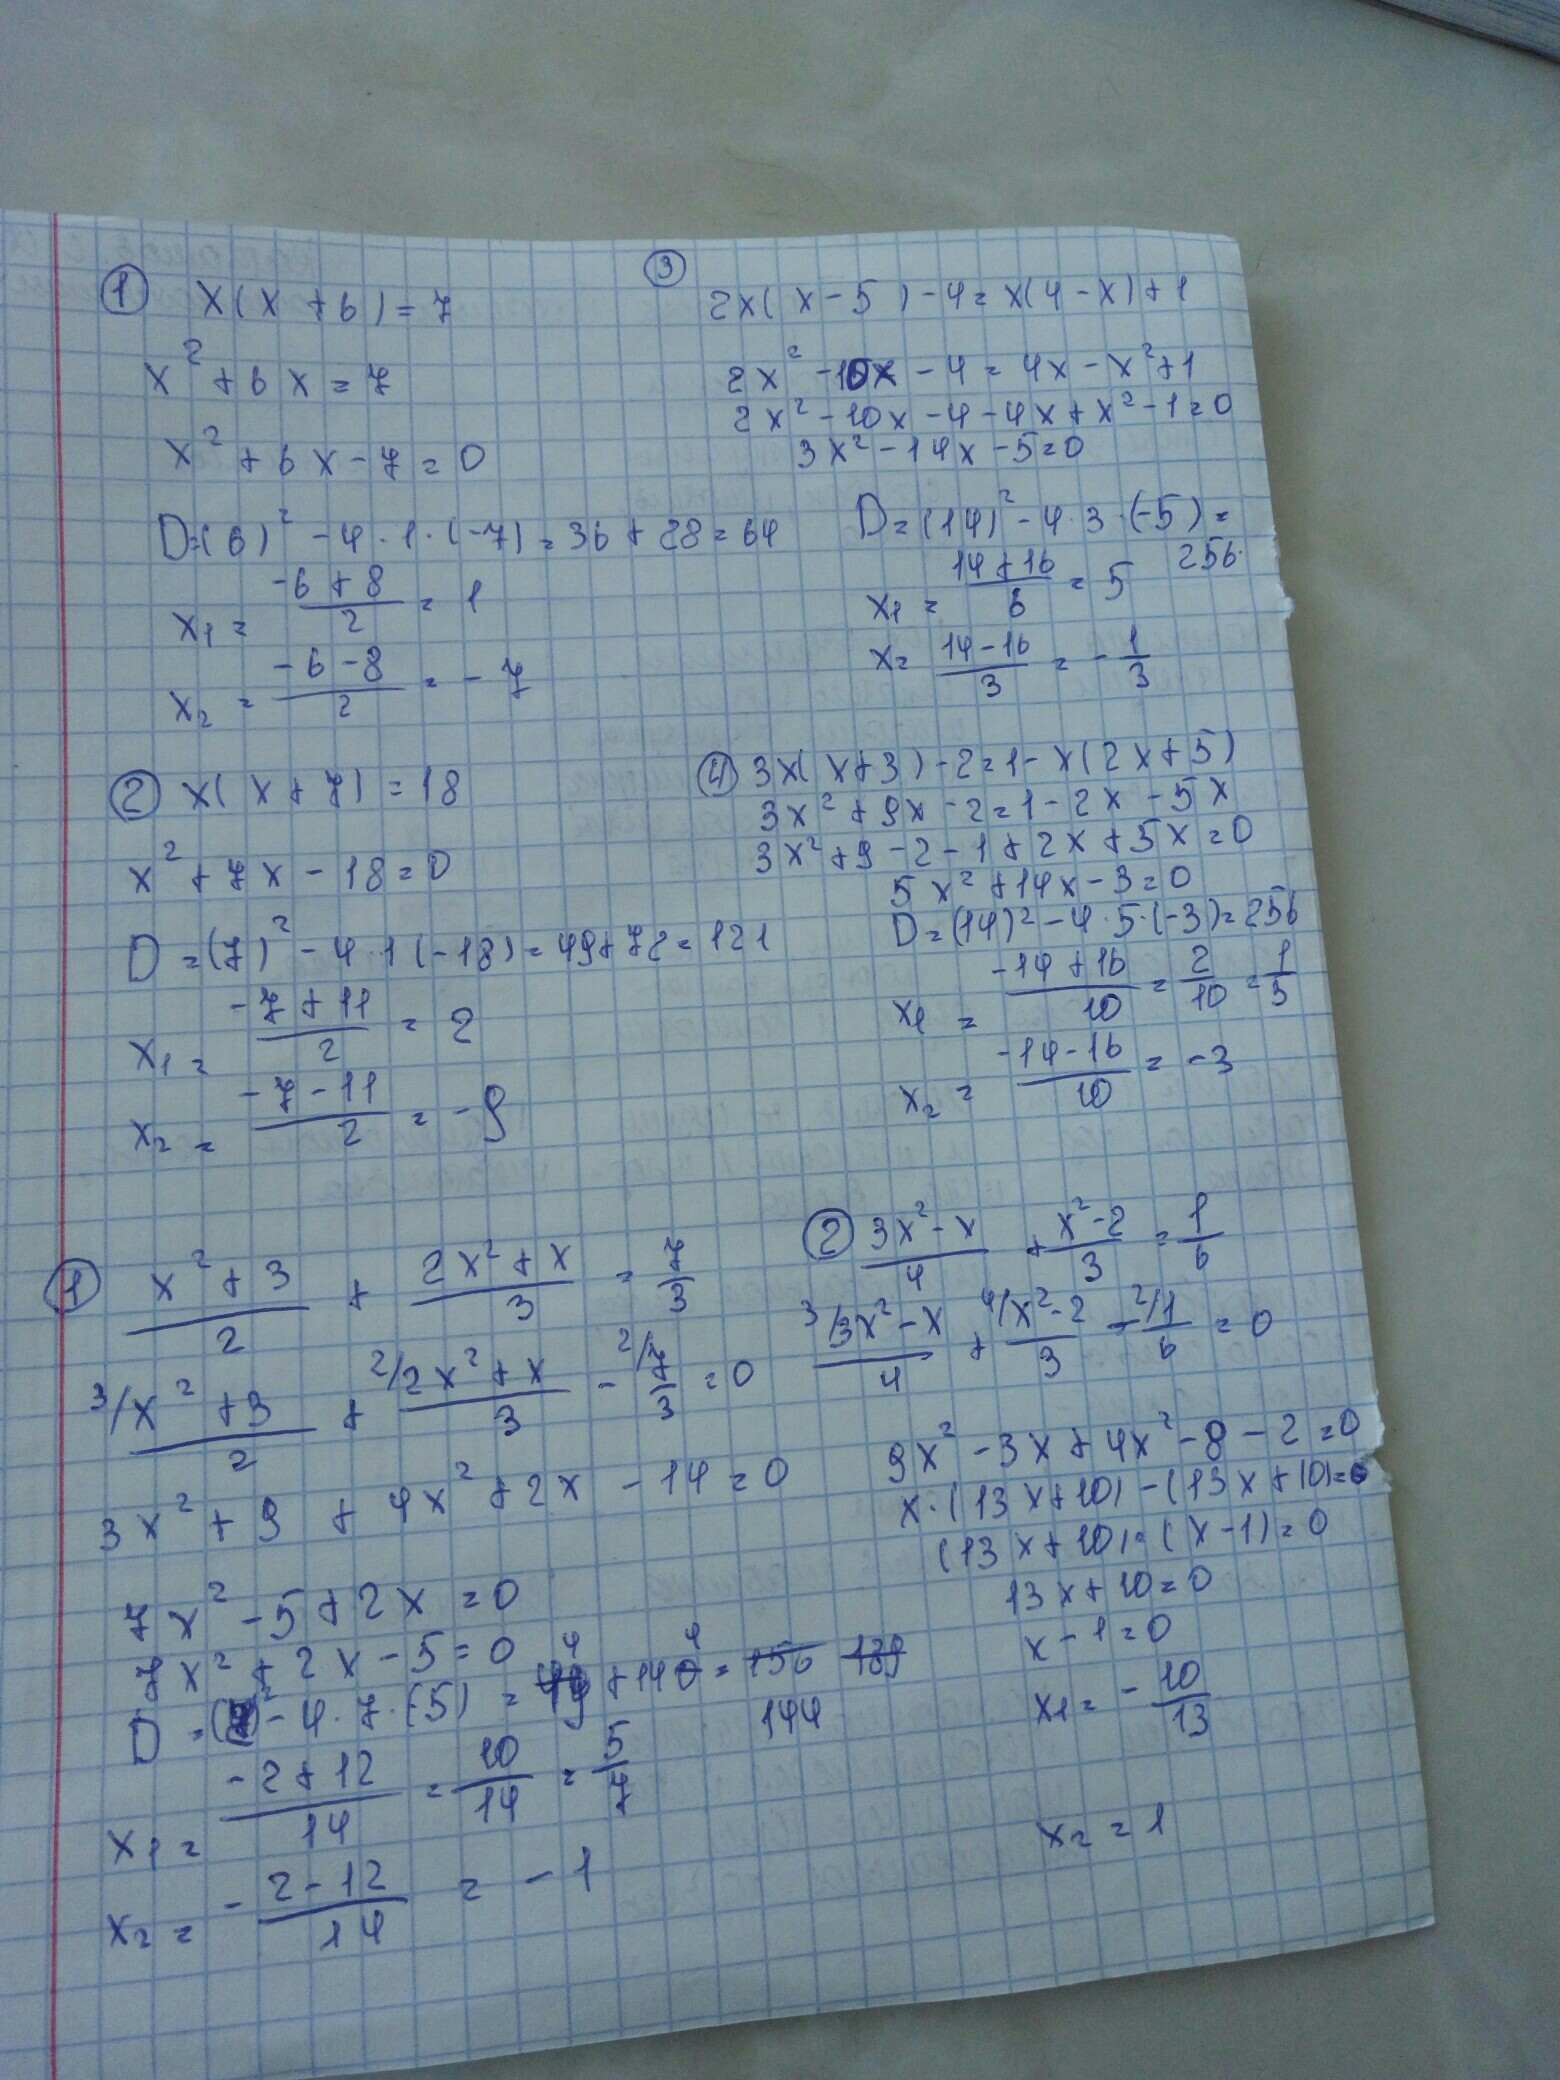 ① x(x+6)=7
x²+6x=7
x²+6x-7=0
D=(6)²-4·1·(-7)=36+28=64
x₁=\frac{-6+8}{2}=1
x₂=\frac{-6-8}{2}=-7
② x(x+7)=18
x²+7x-18=0
D=(7)²-4·1(-18)=49+72=121
x₁=\frac{-7+11}{2}=2
x₂=\frac{-7-11}{2}=-9
③ 2x(x-5)-4=x(4-x)+1
2x²-10x-4=4x-x²+1
2x²-10x-4-4x+x²-1=0
3x²-14x-5=0
D=(14)²-4·3·(-5)=
256.
x₁=\frac{14+16}{6}=5
x=\frac{14-16}{3}=-\frac{1}{3}
④ 3x(x+3)-2=1-x(2x+5)
3x²+9x-2=1-2x-5x
3x²+9-2-1+2x+5x=0
5x²+14x-3=0
D=(14)²-4·5·(-3)=256
x₁=\frac{-14+16}{10}=\frac{2}{10}=\frac{1}{5}
x₂=\frac{-14-16}{10}=-3
① \frac{x²+3}{2}+\frac{2x²+x}{3}=\frac{7}{3}
\frac{3/x²+3}{2}+\frac{2/2x²+x}{3}-\frac{2/7}{3}=0
3x²+9+4x²+2x-14=0
7x²-5+2x=0
7x²+2x-5=0
D=()²-4·7·(5)=4+140=156 189
144
x₁=\frac{-2+12}{14}=\frac{10}{14}=\frac{5}{7}
x₂=-\frac{2-12}{14}=-1
② \frac{3x²-x}{4}+\frac{x²-2}{3}=\frac{1}{6}
\frac{3/3x²-x}{4}+\frac{4/x²-2}{3}-\frac{2/1}{6}=0
9x²-3x+4x²-8-2=0
x·(13x+10)-(13x+10)=0
(13x+10)=(x-1)=0
13x+10=0
x-1=0
x₁=-\frac{10}{13}
x₂=1